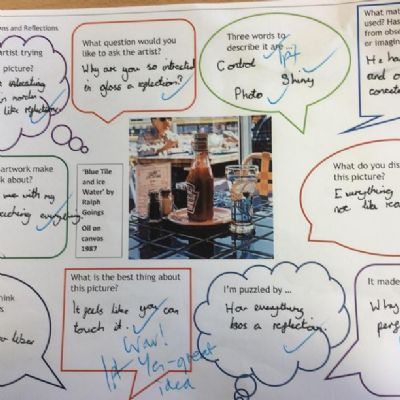 ns and Reflections
artist trying
picture?
like reflections
What question would you
like to ask the artist?
Why are you so intrested
in gloss a reflection?
Three words to
describe it are ...
Control
Shiny
Photo
What mat
used? Has
from obser
or imagin
He ha
and o
artwork make
k about?
me with my
everything
'Blue Tile
and Ice
Water' by
Ralph
Goings
Oil on
canvas
1987
What do you dis
this picture?
Everything
not like rea
hink
What is the best thing about
this picture?
It feels like you can
touch it.
Wow!
Yes-great
idea
I'm puzzled by ...
How everything
has a reflection.
It made
Why
per